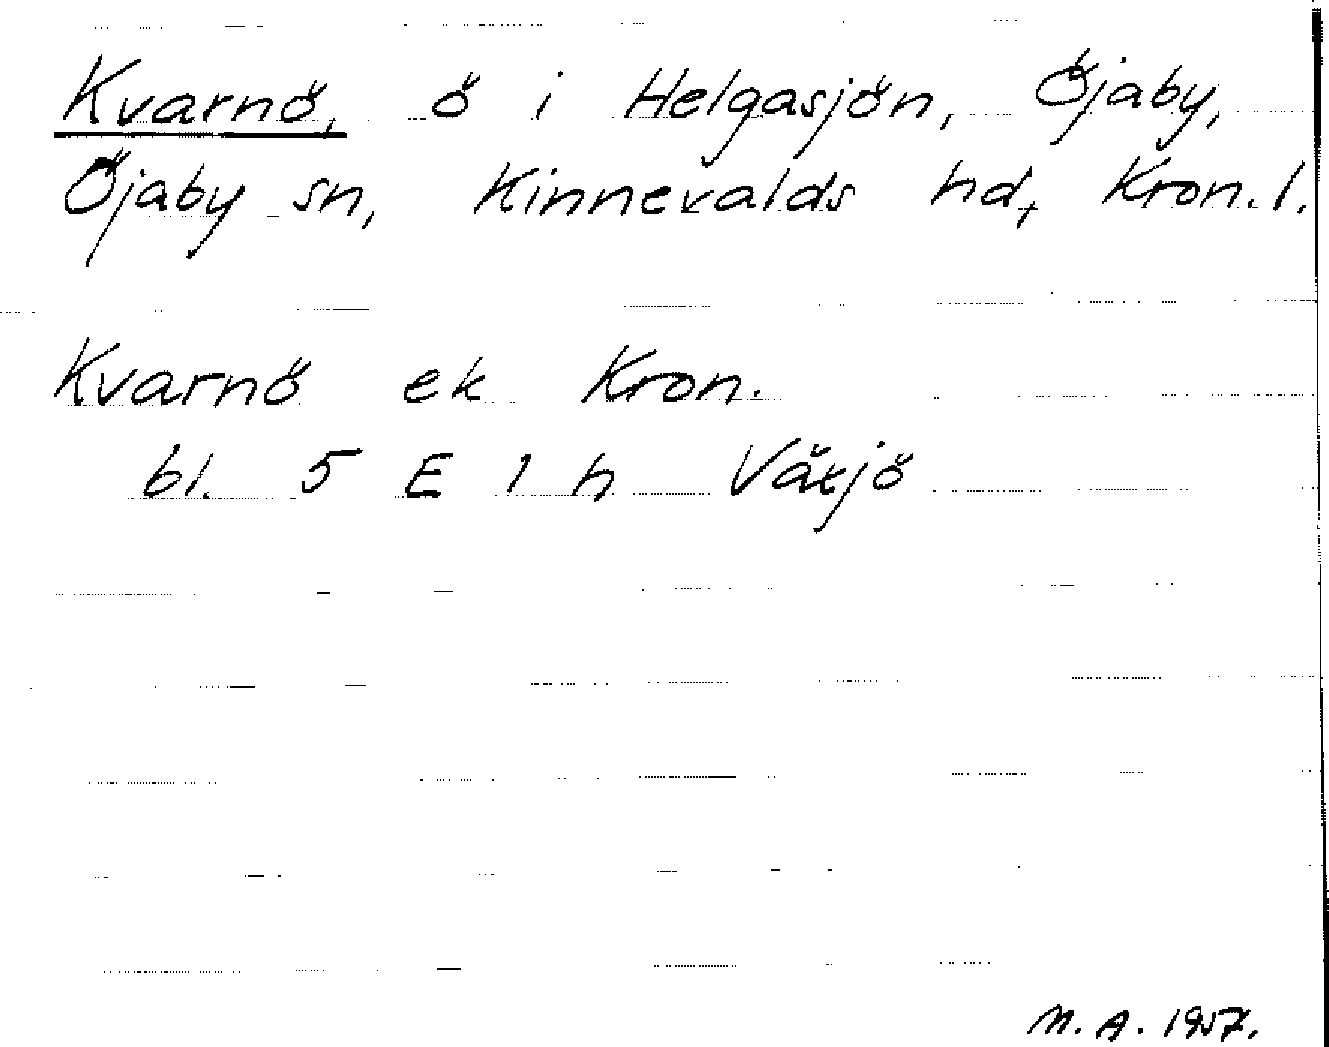 Kvarnö, ö i Helgasjön, Öjaby,
Öjaby sn, Kinnevalds hd, Kron. l.
Kvarnö ek Kron.
bl. 5 E 1 h Växjö
M. A. 1957.